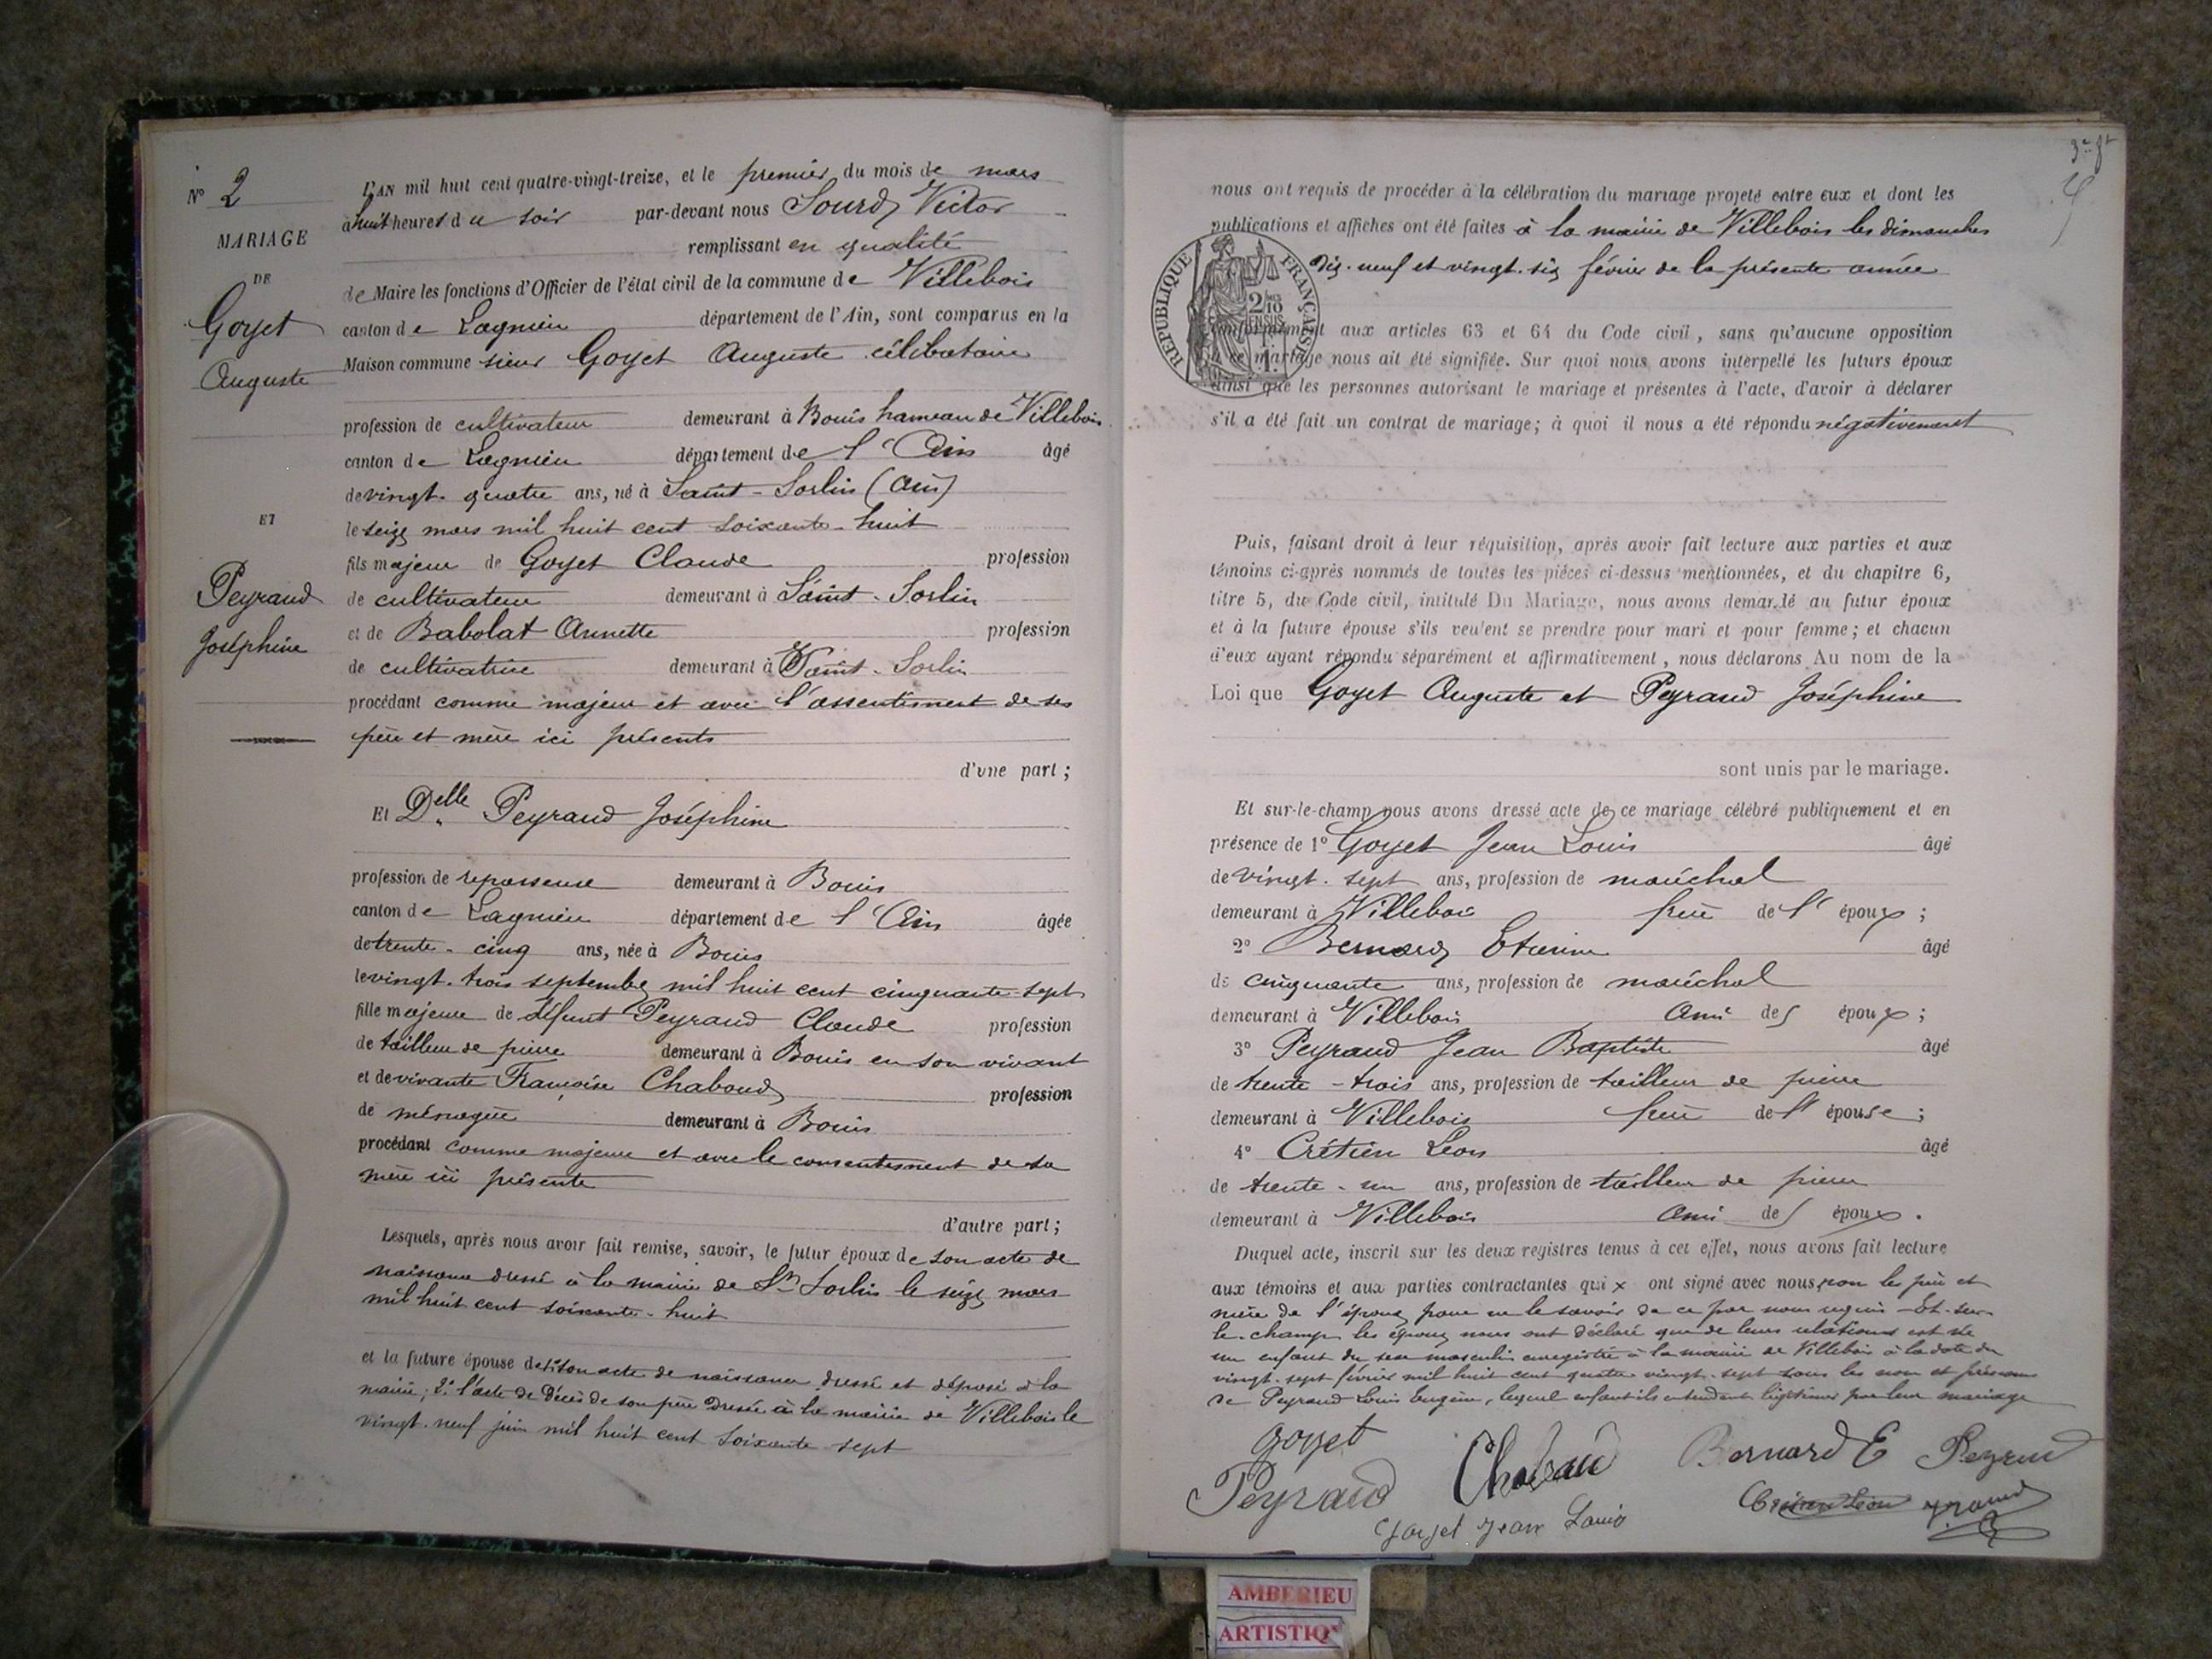 N° 2
MARIAGE
DE
Goyet
Auguste
ET
Peyraud
Joséphine
L'AN mil huit cent quatre-vingt-treize, et le premier du mois de mars
à huit heures du soir par-devant nous Sourd Victor
remplissant en qualité
de Maire les fonctions d'Officier de l'état civil de la commune de Villebois
canton de Lagnieu département de l'Ain, sont comparus en la
Maison commune sieur Goyet Auguste célibataire
profession de cultivateur demeurant à Bouis hameau de Villebois
canton de Lagnieu département de l'Ain âgé
de vingt-quatre ans, né à Saint-Sorlin (Ain)
le seize mars mil huit cent soixante-huit
fils majeur de Goyet Claude profession
de cultivateur demeurant à Saint-Sorlin
et de Babolat Annette profession
de cultivatrice demeurant à Saint-Sorlin
procédant comme majeur et avec l'assentiment de ses
père et mère ici présents
d'une part;
Et Delle Peyraud Joséphine
profession de repasseuse demeurant à Bouis
canton de Lagnieu département de l'Ain âgée
de trente-cinq ans, née à Bouis
le vingt-trois septembre mil huit cent cinquante-sept
fille majeure de défunt Peyraud Claude profession
de tailleur de pierre demeurant à Bouis en son vivant
et de vivante Françoise Chaboud profession
de ménagère demeurant à Bouis
procédant comme majeure et avec le consentement de sa
mère ici présente
d'autre part;
Lesquels, après nous avoir fait remise, savoir, le futur époux de son acte de
naissance dressé à la mairie de St Sorlin le seize mars
mil huit cent soixante-huit
et la future épouse de 1° son acte de naissance dressé et déposé à la
mairie; 2° l'acte de décès de son père dressé à la mairie de Villebois le
vingt-neuf juin mil huit cent soixante sept
3e ft
nous ont requis de procéder à la célébration du mariage projeté entre eux et dont les
publications et affiches ont été faites à la mairie de Villebois les dimanches
dix-neuf et vingt-six février de la présente année
RÉPUBLIQUE FRANÇAISE
2/10 EN SUS
conformément aux articles 63 et 64 du Code civil, sans qu'aucune opposition
à ce mariage nous ait été signifiée. Sur quoi nous avons interpellé les futurs époux
ainsi que les personnes autorisant le mariage et présentes à l'acte, d'avoir à déclarer
s'il a été fait un contrat de mariage; à quoi il nous a été répondu négativement
Puis, faisant droit à leur réquisition, après avoir fait lecture aux parties et aux
témoins ci-après nommés de toutes les pièces ci-dessus mentionnées, et du chapitre 6,
titre 5, du Code civil, intitulé Du Mariage, nous avons demandé au futur époux
et à la future épouse s'ils veulent se prendre pour mari et pour femme; et chacun
d'eux ayant répondu séparément et affirmativement, nous déclarons Au nom de la
Loi que Goyet Auguste et Peyraud Joséphine
sont unis par le mariage.
Et sur-le-champ nous avons dressé acte de ce mariage célébré publiquement et en
présence de 1° Goyet Jean Louis âgé
de vingt-sept ans, profession de maréchal
demeurant à Villebois frère de l'époux;
2° Bernard Etienne âgé
de cinquante ans, profession de maréchal
demeurant à Villebois ami des époux;
3° Peyraud Jean Baptiste âgé
de trente-trois ans, profession de tailleur de pierre
demeurant à Villebois frère de l'épouse;
4° Crétien Léon âgé
de trente-un ans, profession de tailleur de pierre
demeurant à Villebois ami des époux.
Duquel acte, inscrit sur les deux registres tenus à cet effet, nous avons fait lecture
aux témoins et aux parties contractantes qui x ont signé avec nous, non les père et
mère de l'époux pour ne le savoir de ce par nous requis - Et sur-
le-champ les époux nous ont déclaré que de leurs relations est né
un enfant du sexe masculin enregistré à la mairie de Villebois à la date du
vingt-sept février mil huit cent quatre vingt-sept sous les nom et prénoms
de Peyraud Louis Eugène, lequel enfant ils entendent légitimer par leur mariage
Goyet
Chaboud
Bernard E
Peyraud
Peyraud
Goyet Jean Louis
AMBERIEU
ARTISTIQ